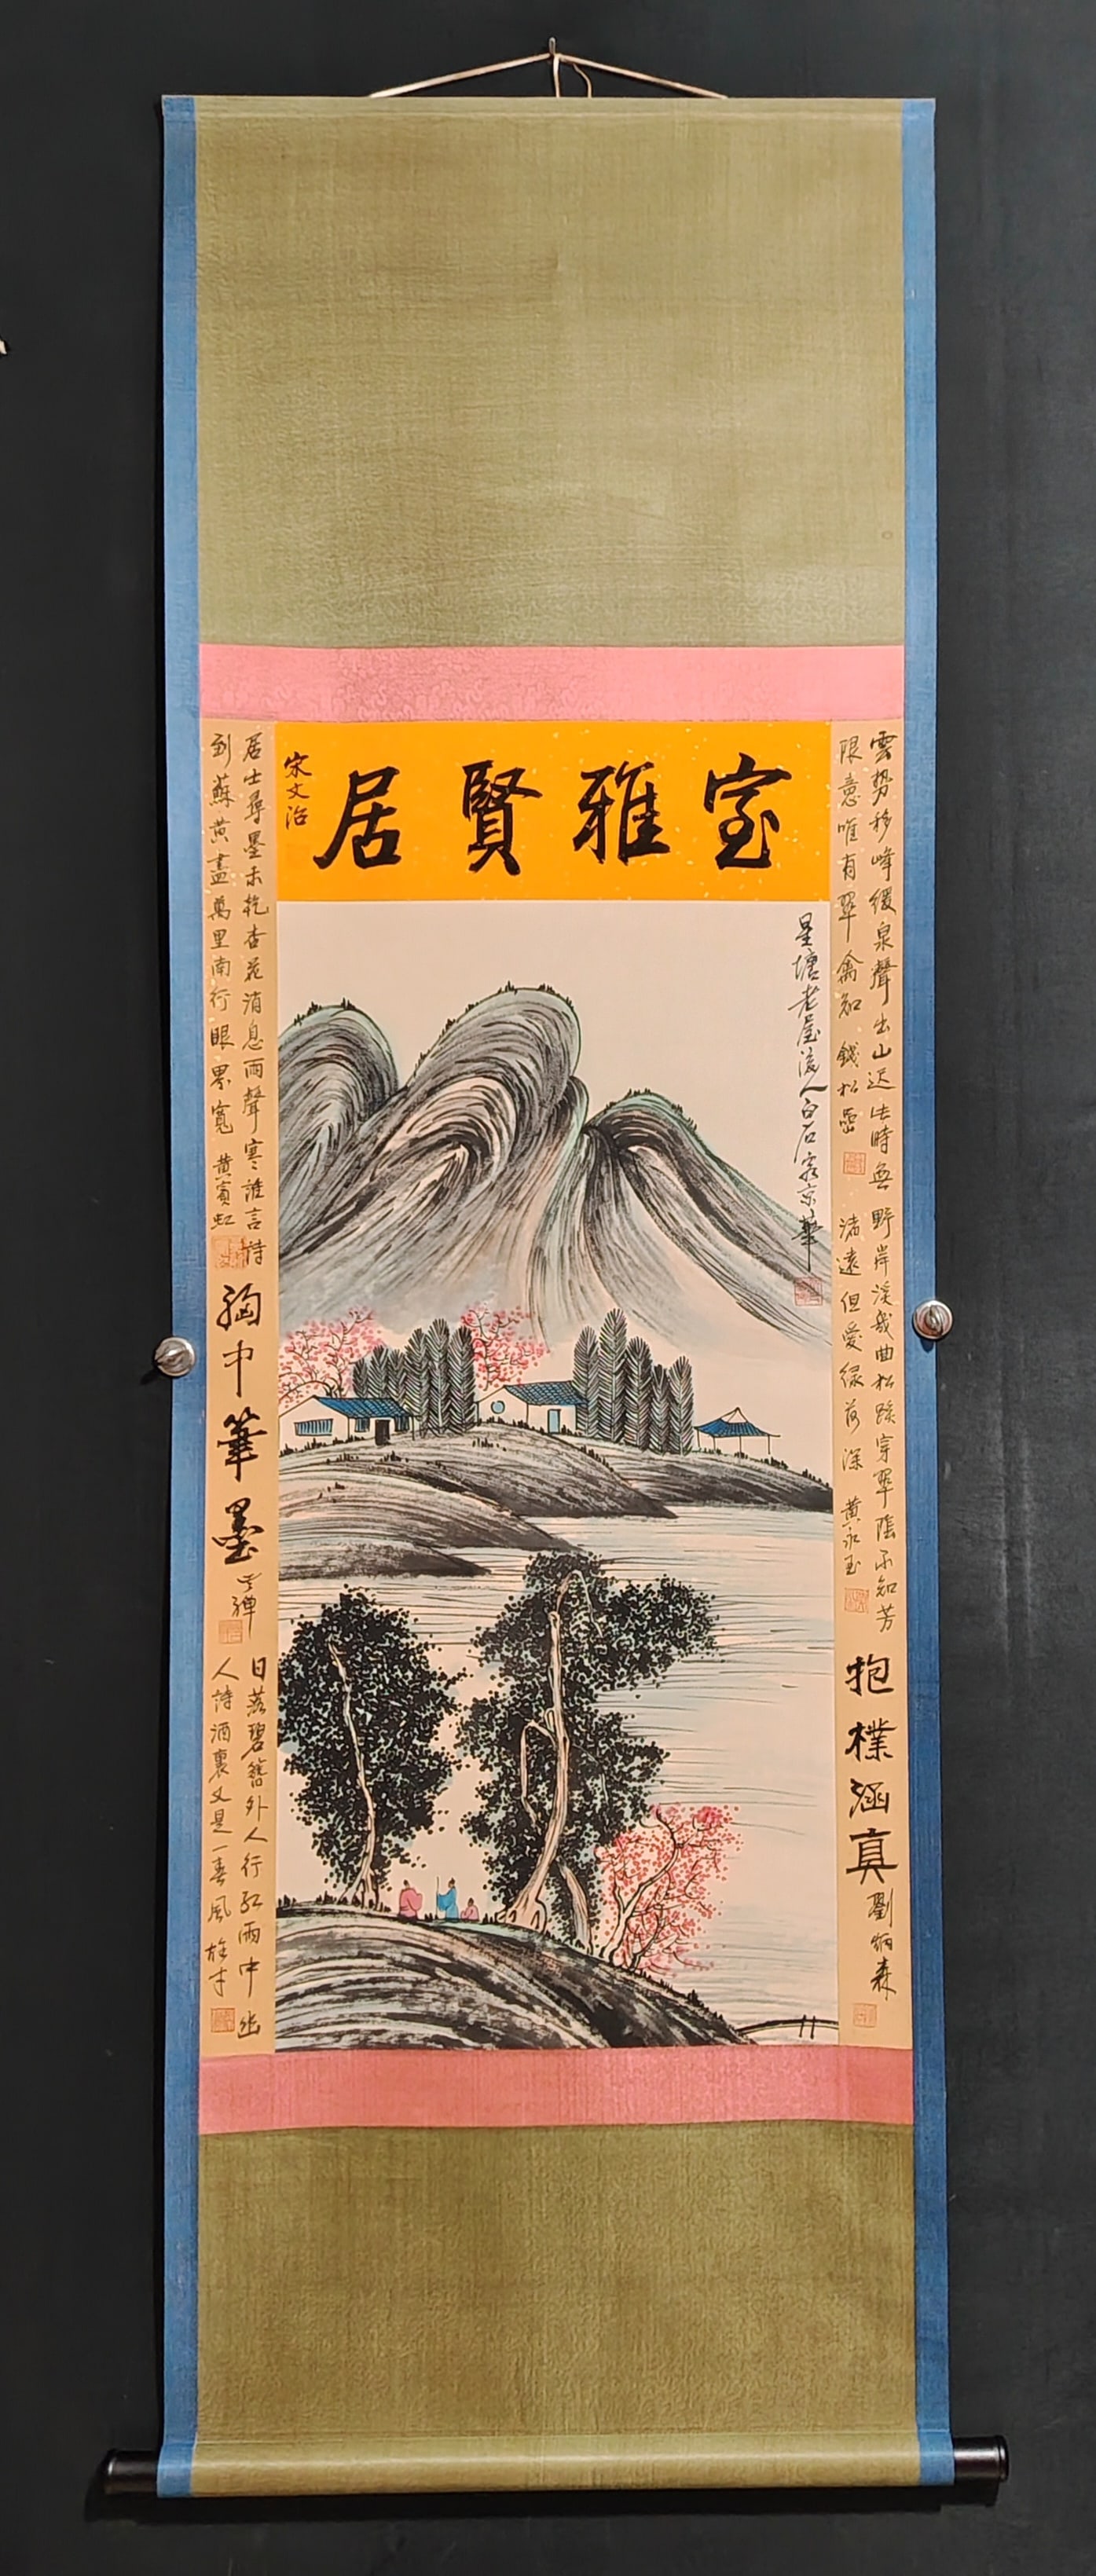 室雅賢居
宋文治
星塘老屋後人白石客京華
雲勢移峰緩泉聲出山遲此時無
限意唯有翠禽知 錢松嵒
野岸溪幾曲松蹊穿翠陰不知芳
渚遠但愛綠荷深 黄永玉
抱樸涵真
劉炳森
居士尋墨未乾杏花消息雨聲寒誰言詩
到蘇黄盡萬里南行眼界寬 黄賓虹
胸中筆墨
日落碧簷外人行紅雨中幽
人詩酒裏又是一春風